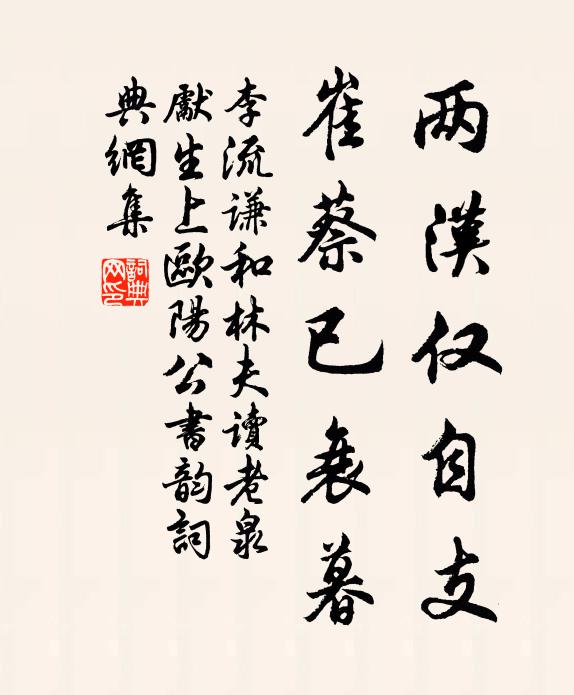 两漢仅自支
崔蔡已衰暮
李流谦和林夫讀老泉
獻生上歐陽公書韵詞
典網集
詞典网印